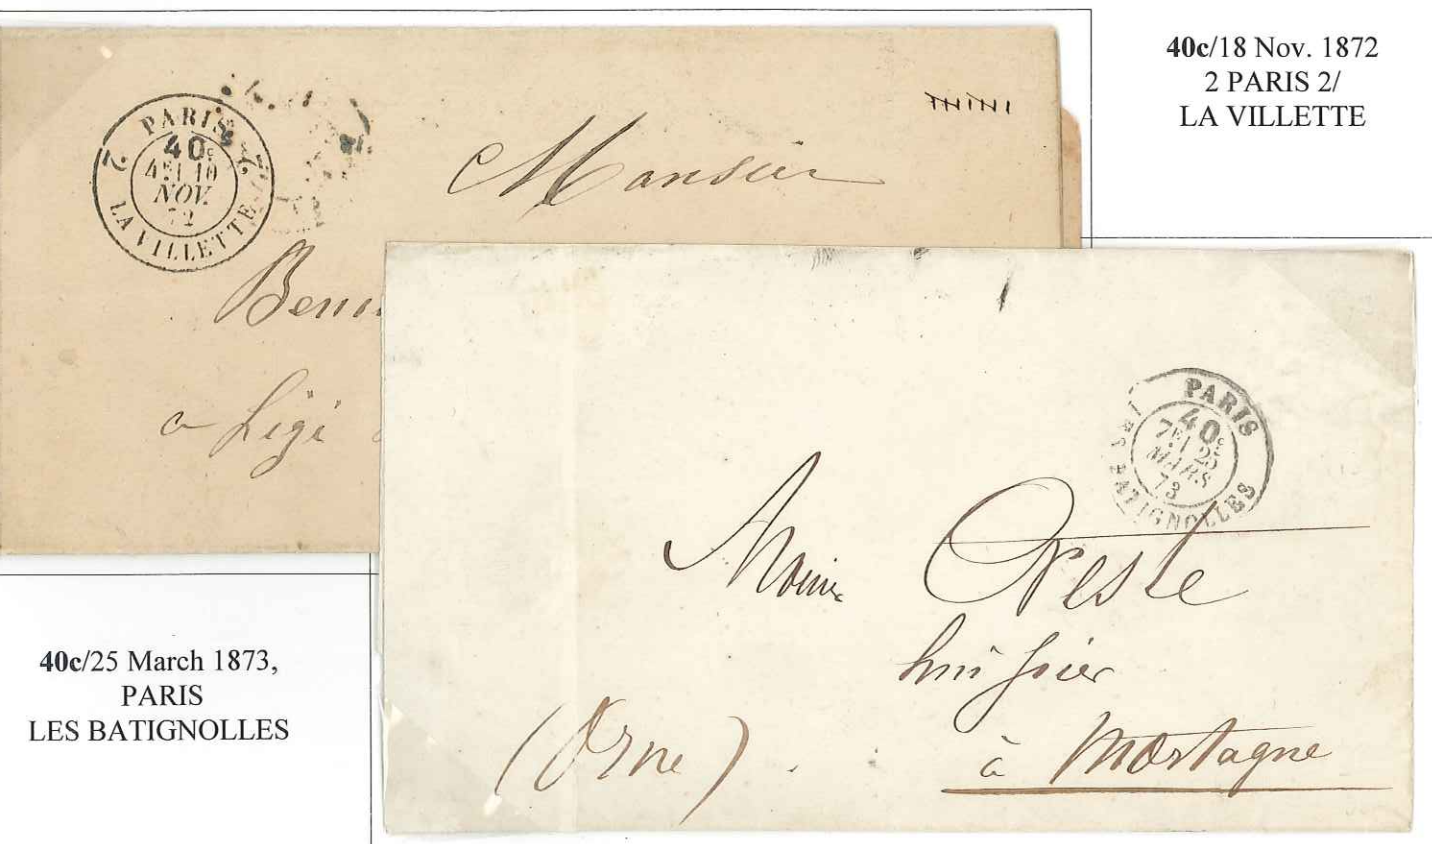 40c/18 Nov. 1872
2 PARIS 2/
LA VILLETTE
PARIS
40c
4E/
NOV.
72
2 2
LA VILLETTE
Monsieur
a Ligi
PARIS
40c
7E/ 25
MARS
73
LES BATIGNOLLES
Oreste
huissier
à Mortagne
(Orne)
40c/25 March 1873,
PARIS
LES BATIGNOLLES